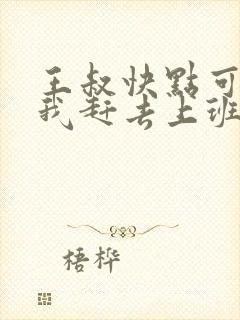 王叔快點可
我赶去上班
梧桦